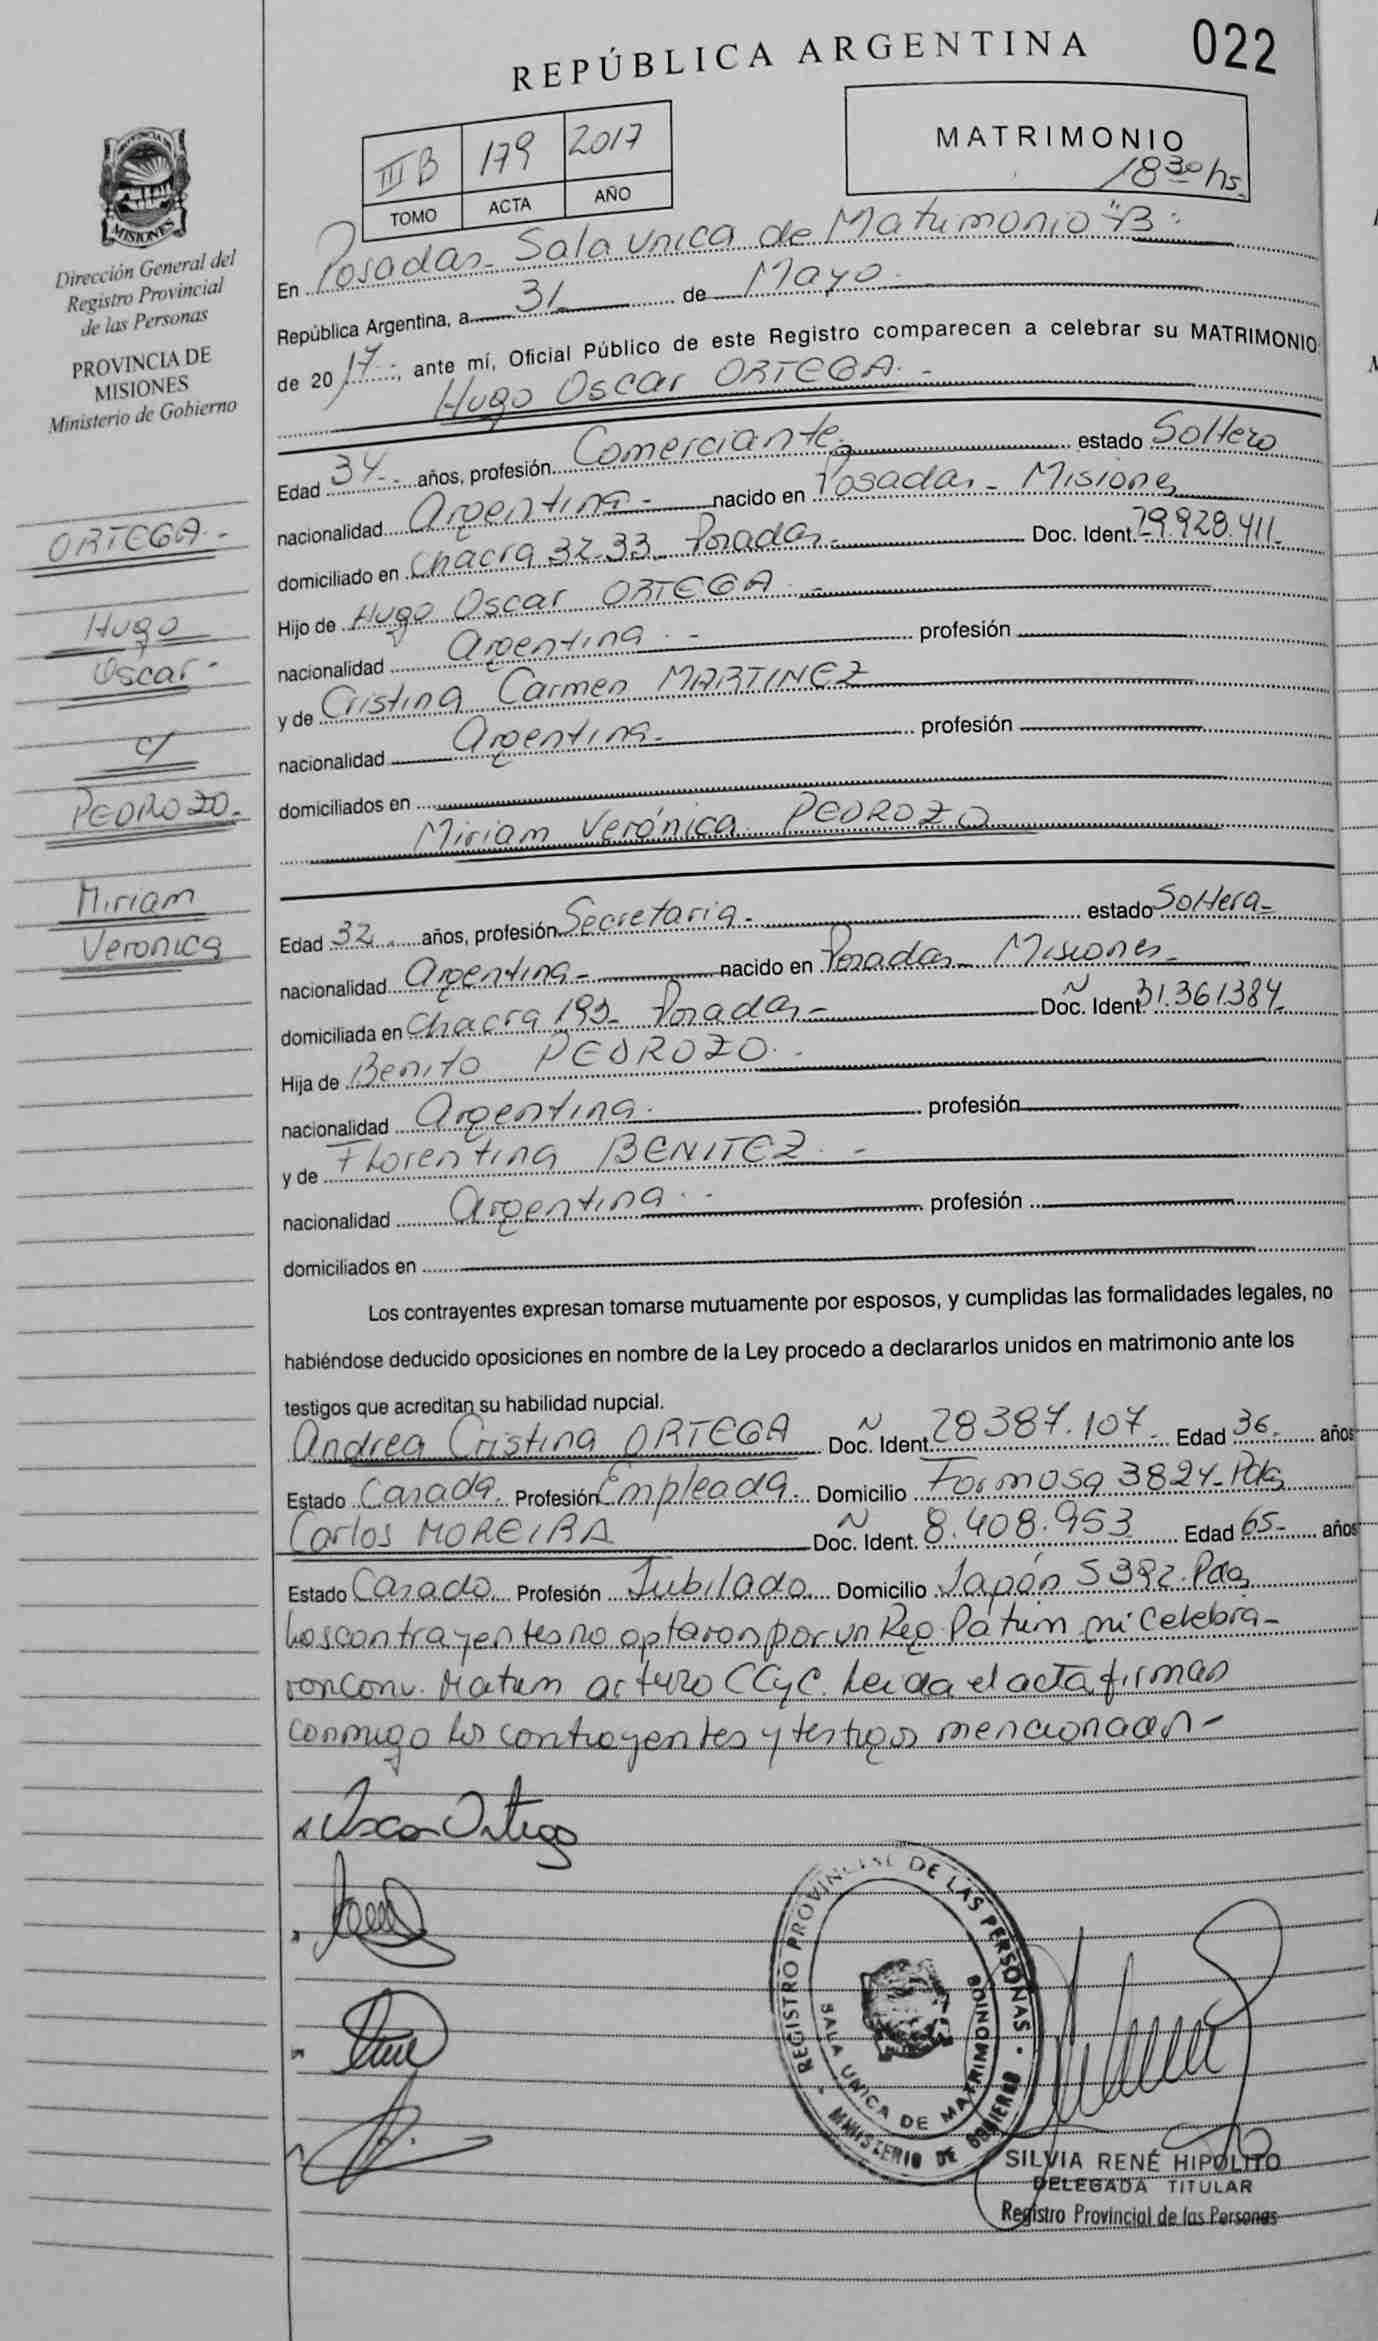 REPÚBLICA ARGENTINA
022
III B 179 2017
TOMO ACTA AÑO
MATRIMONIO
18 30 hs.
MISIONES
Dirección General del
Registro Provincial
de las Personas
PROVINCIA DE
MISIONES
Ministerio de Gobierno
ORTEGA.-
Hugo
Oscar-
c/
PEDROZO.
Miriam
Veronica
En Posadas- Sala Unica de Matrimonio "B".
República Argentina, a 31 de Mayo.
de 2017.-, ante mí, Oficial Público de este Registro comparecen a celebrar su MATRIMONIO:
Hugo Oscar ORTEGA.-
Edad 34.- años, profesión Comerciante. estado Soltero
nacionalidad Argentina.- nacido en Posadas- Misiones
domiciliado en Chacra 32-33- Posadas- Doc. Ident. 29.928.411-
Hijo de Hugo Oscar ORTEGA.-
nacionalidad Argentina.- profesión
y de Cristina Carmen MARTINEZ
nacionalidad Argentina- profesión
domiciliados en
Miriam Verónica PEDROZO
Edad 32.- años, profesión Secretaria- estado Soltera-
nacionalidad Argentina- nacido en Posadas- Misiones-
domiciliada en Chacra 192- Posadas- Doc. Ident. 31.361.384-
Hija de Benito PEDROZO.-
nacionalidad Argentina. profesión
y de Florentina BENITEZ.-
nacionalidad Argentina.- profesión
domiciliados en
Los contrayentes expresan tomarse mutuamente por esposos, y cumplidas las formalidades legales, no
habiéndose deducido oposiciones en nombre de la Ley procedo a declararlos unidos en matrimonio ante los
testigos que acreditan su habilidad nupcial.
Andrea Cristina ORTEGA Doc. Ident. 28387.107- Edad 36. años
Estado Casada. Profesión Empleada. Domicilio Formosa 3824-Pdas
Carlos MOREIRA Doc. Ident. 8.408.953 Edad 65- años
Estado Casado. Profesión Jubilado. Domicilio Japón 5392-Pdas
Los contrayentes no optaron por un Reg. Patrim ni Celebra-
ron Conv. Matrim art 420 CCyC. Leida el acta, firman
conmigo los contrayentes y testigos mencionados-
Oscar Ortega
REGISTRO PROVINCIAL DE LAS PERSONAS
SALA UNICA DE MATRIMONIOS
MINISTERIO DE GOBIERNO
SILVIA RENÉ HIPOLITO
DELEGADA TITULAR
Registro Provincial de las Personas